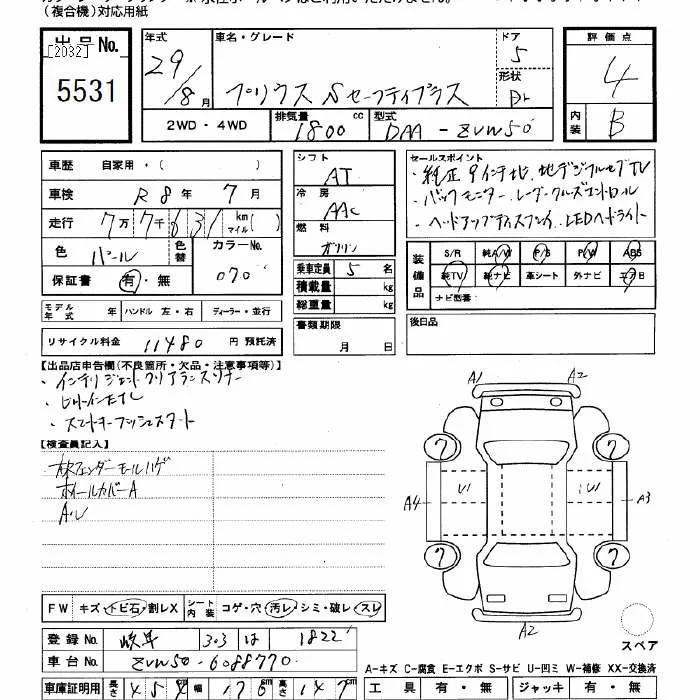 (複合機)対応用紙
出品No.
[2032]
5531
年式
29/8月
車名・グレード
プリウス Sセーフティプラス
ドア
5
形状
評価点
4
内装
B
2WD・4WD
排気量
1800 cc
型式
DAA-ZVW50
車歴 自家用・( )
車検 R8年7月
走行 7万7千631 km マイル( )
色 パール
色替
カラーNo.
070
保証書 有・無
シフト
AT
冷房
AAC
燃料
ガソリン
乗車定員 5 名
積載量 kg
総重量 kg
セールスポイント
・純正9インチナビ、地デジフルセグTV
・バックモニター、レーダークルーズコントロール
・ヘッドアップディスプレイ、LEDヘッドライト
装備品
S/R 純A/W P/S P/W ABS
純TV 純ナビ 革シート 外ナビ エアB
ナビ型番:
モデル年式 年 ハンドル 左・右 ディーラー・並行
リサイクル料金 11480 円 預託済
書類期限
月 日
後日品
【出品店申告欄(不良箇所・欠品・注意事項等)】
・インテリジェントクリアランスソナー
・スマートキープッシュスタート
【検査員記入】
ホイールカバーA
A・U
A1 A2
7 7
A4 U U A3
7 7
A2
スペア
FW キズ・トビ石・割レX
シート内装 コゲ・穴・汚レ・シミ・破レ・スレ
登録No. 岐阜 303 は 1822
車台No. ZVW50-6088770
A-キズ C-腐食 E-エクボ S-サビ U-凹ミ W-補修 XX-交換済
車庫証明用 長さ 454 cm 幅 176 cm 高さ 147 cm
工具 有・無 ジャッキ 有・無